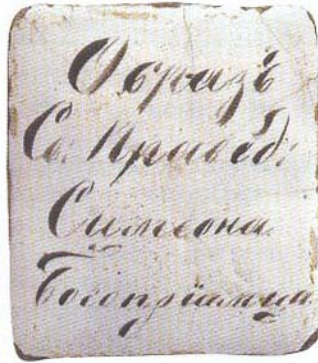 Образъ
Св. Правед:
Симеона
Богопріимца